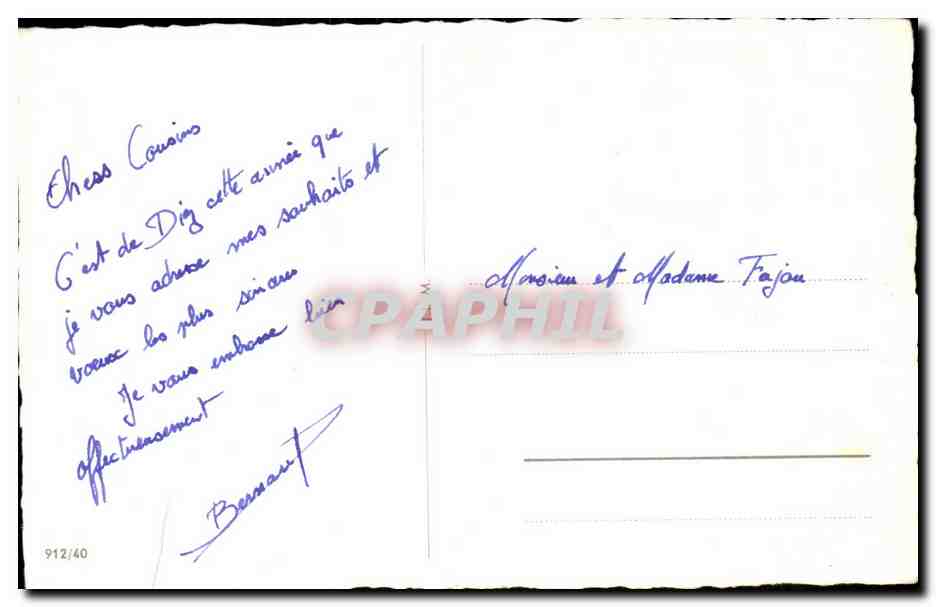 Chers Cousins
C'est de Diez cette année que
je vous adresse mes souhaits et
voeux les plus sincères
Je vous embrasse bien
affectueusement
Bernard
912/40
M
Monsieur et Madame Fajou
CPAPHIL